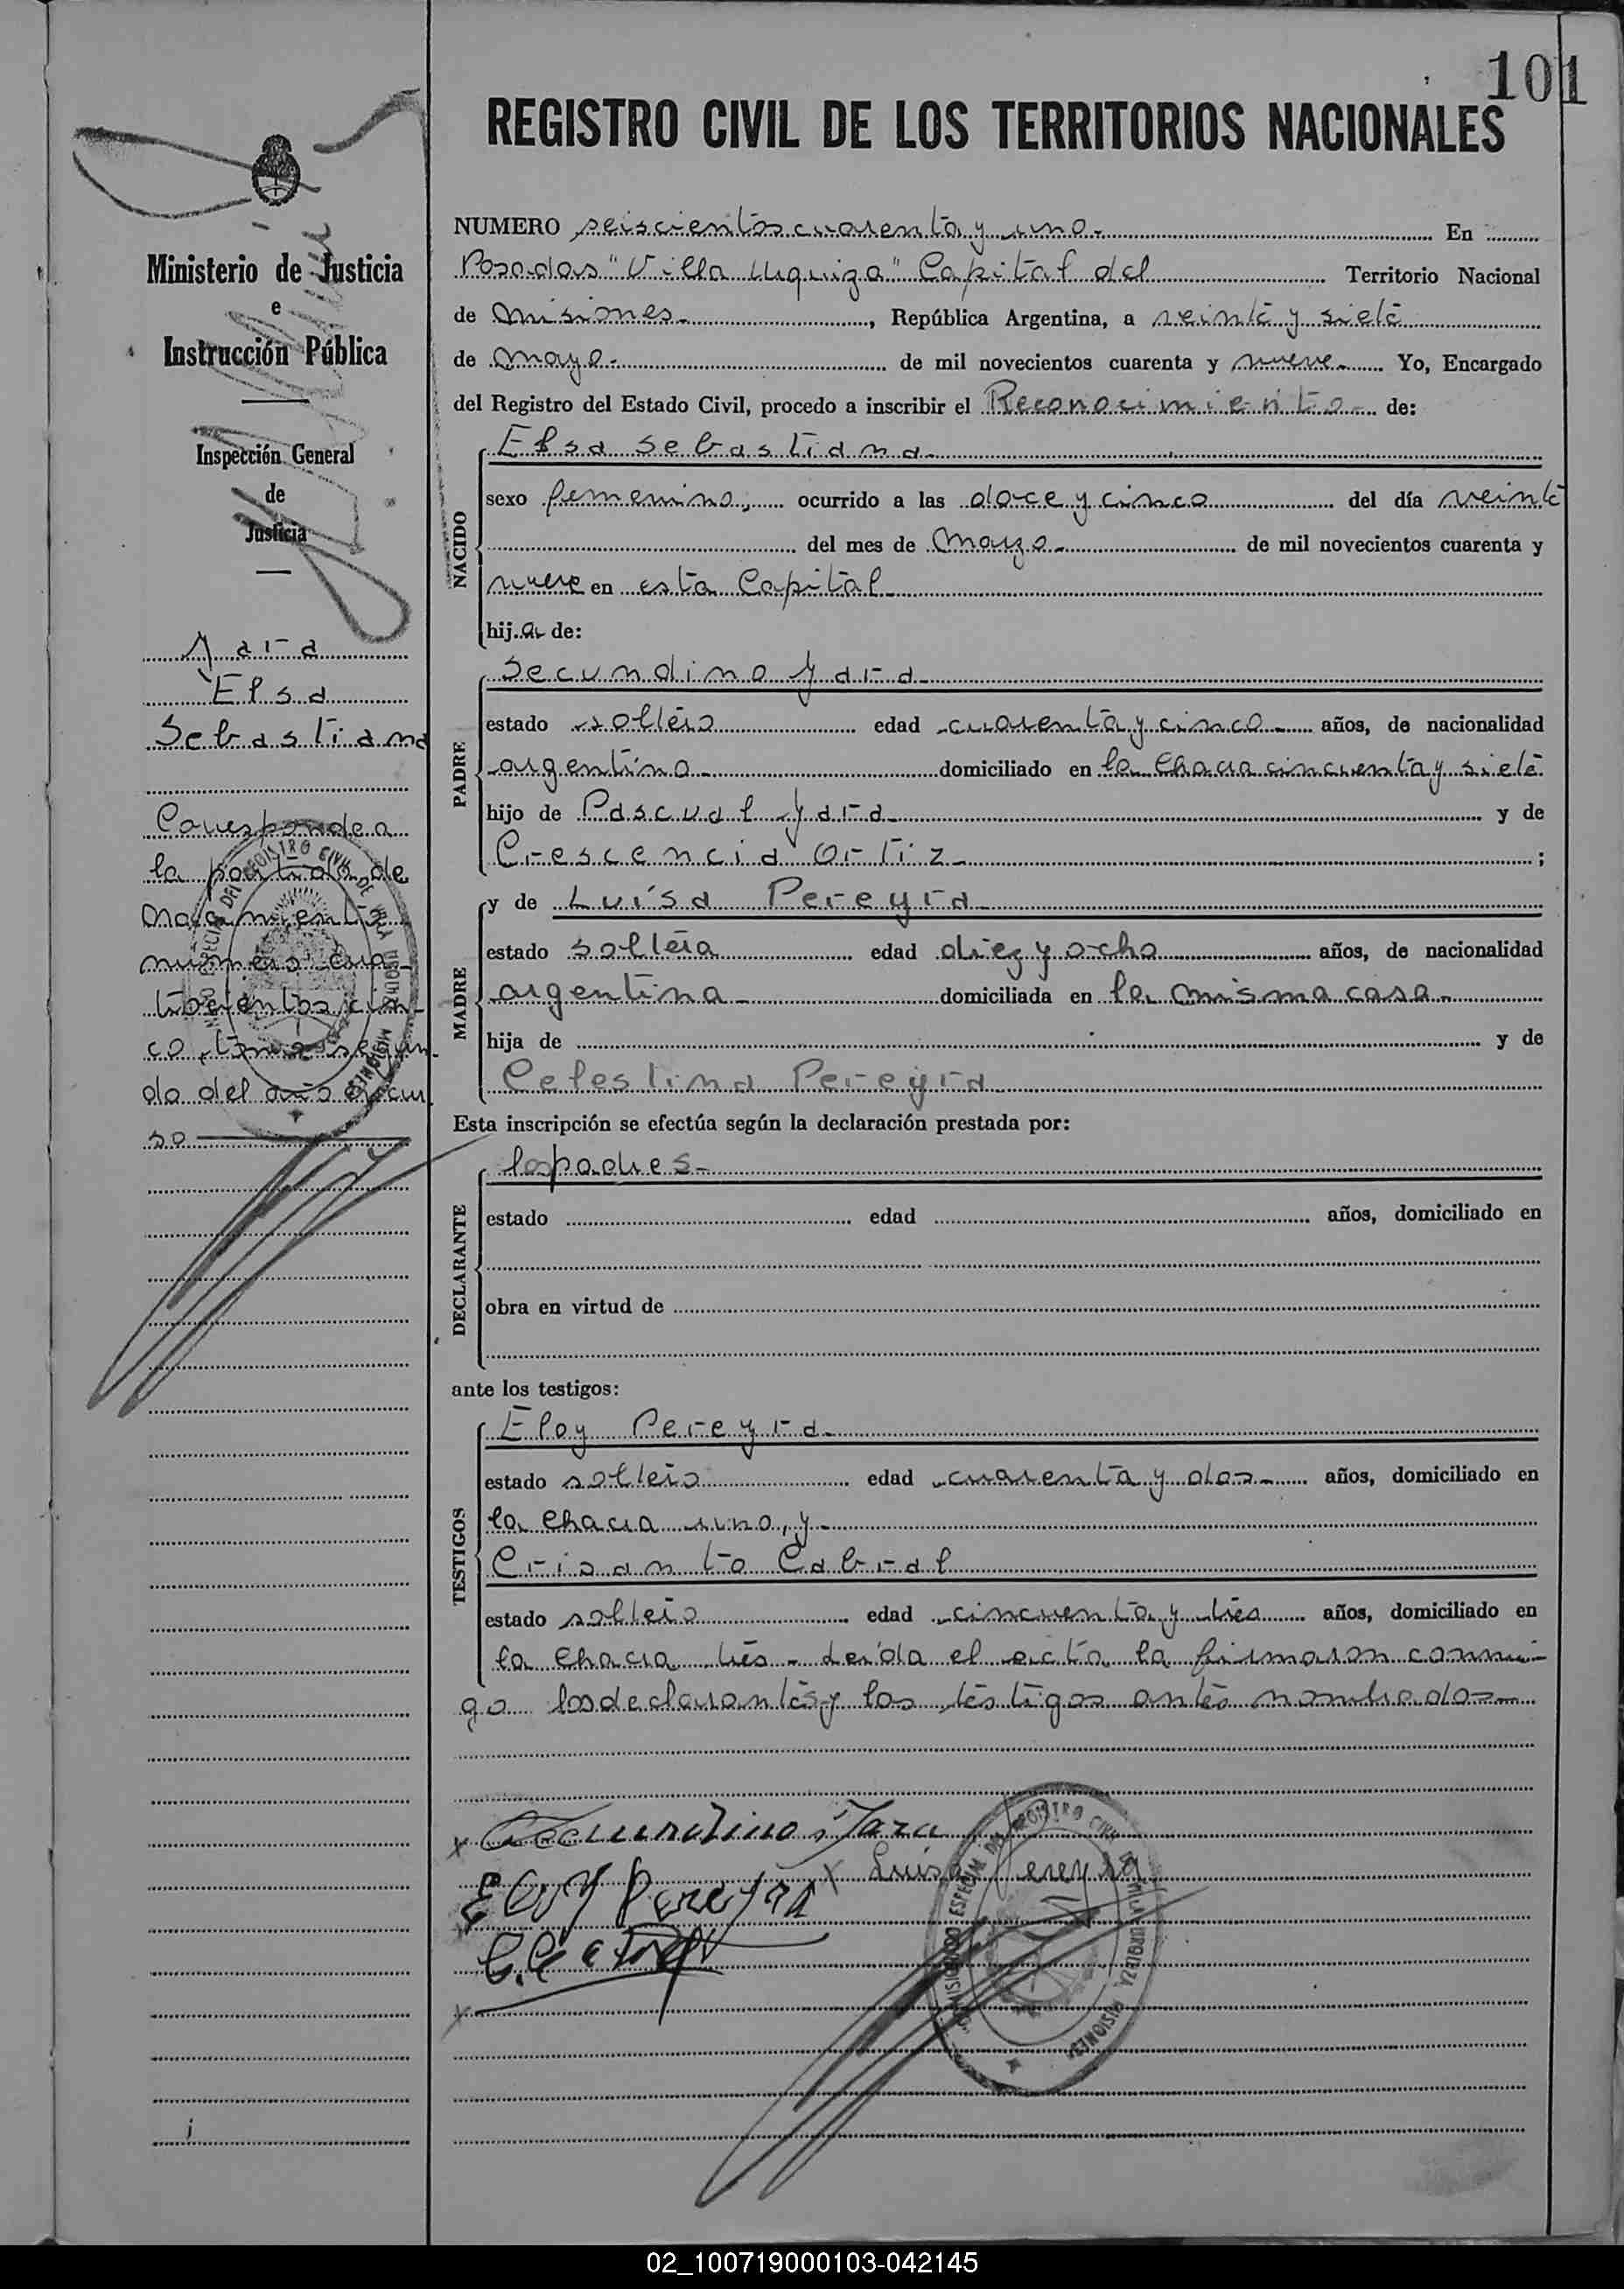 101
REGISTRO CIVIL DE LOS TERRITORIOS NACIONALES
Ministerio de Justicia
e
Instrucción Pública
Inspección General
de
Justicia
Yara
Elsa
Sebastiana
Corresponde a
la partida de
nacimiento
número cua-
trocientos cin-
co, tomo segun-
do del año en cur
so
NUMERO seiscientos cuarenta y uno.- En
Posadas "Villa Urquiza" Capital del Territorio Nacional
de Misiones.-, República Argentina, a veinte y siete
de Mayo.- de mil novecientos cuarenta y nueve.- Yo, Encargado
del Registro del Estado Civil, procedo a inscribir el Reconocimiento.- de:
NACIDO
Elsa Sebastiana.-
sexo femenino, ocurrido a las doce y cinco del día veinte
del mes de Marzo.- de mil novecientos cuarenta y
nueve en esta Capital.-
hija de:
PADRE
Secundino Yara.-
estado soltero edad cuarenta y cinco.- años, de nacionalidad
argentino.- domiciliado en la Chacra cincuenta y siete
hijo de Pascual Yara.- y de
Crescencia Ortiz.- ;
MADRE
y de Luísa Pereyra.-
estado soltera edad diez y ocho años, de nacionalidad
argentina.- domiciliada en la misma casa.-
hija de y de
Celestina Pereyra
Esta inscripción se efectúa según la declaración prestada por:
DECLARANTE
los padres.-
estado edad años, domiciliado en
obra en virtud de
ante los testigos:
TESTIGOS
Eloy Pereyra.-
estado soltero edad cuarenta y dos.- años, domiciliado en
la Chacra uno, y.-
Crisanto Cabral
estado soltero edad cincuenta y tres años, domiciliado en
la Chacra tres.- Leída el acta la firmaron conmi-
go los declarantes y los testigos antes nombrados.-
Secundino Yara
Luisa Pereyra
Eloy Pereyra
REGISTRO CIVIL DE VILLA URQUIZA MISIONES
02_100719000103-042145